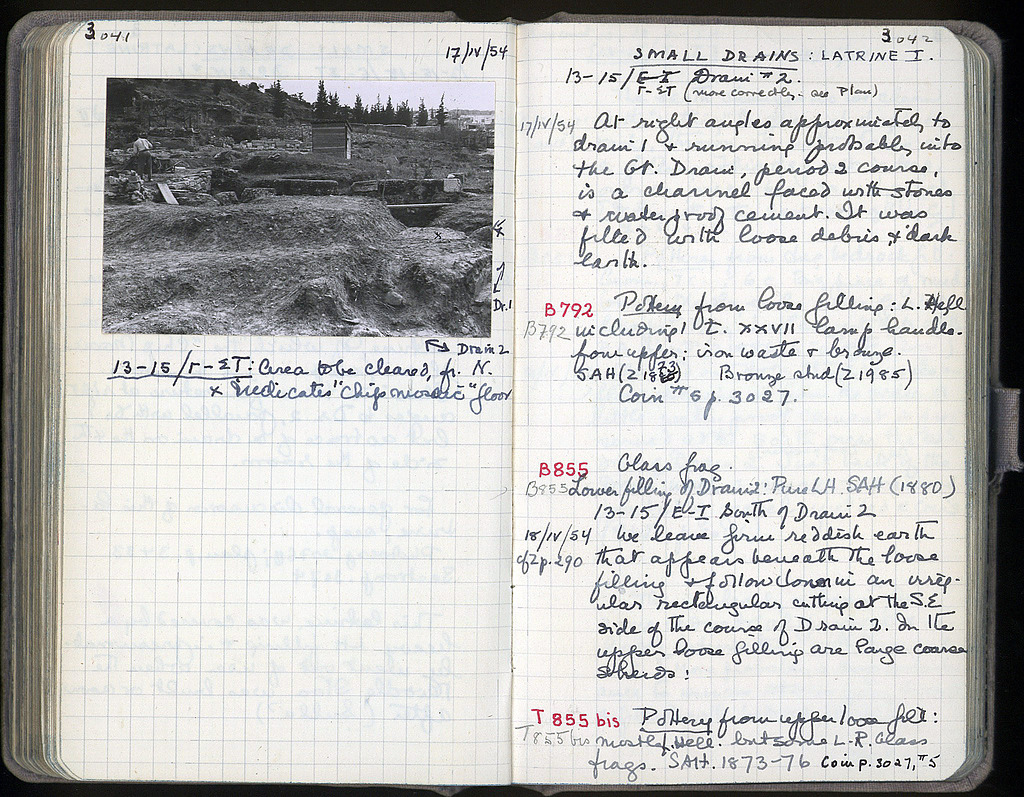 3041
17/IV/54
Dr.1
Drain 2
13-15/Γ-ΣΤ: Area to be cleared, fr. N.
x indicates "Chips mosaic" floor
3042
SMALL DRAINS: LATRINE I.
13-15/E-I Drain #2.
Γ-ΣΤ (more correctly. see Plan)
17/IV/54 At right angles approximately to
drain 1 & running probably into
the Gt. Drain, period 2 course,
is a channel faced with stones
& waterproof cement. It was
filled with loose debris & dark
earth.
B792 Pottery from loose filling: L. Hell
B792 including 1 T. XXVII lamp handle.
from upper: iron waste & bronze.
SAH (Z 18 Bronze stud (Z 1985)
Coin #6 p. 3027.
B855 Glass frag.
B855 Lower filling of Drain 2: Pure LH. SAH (1880)
13-15/E-I South of Drain 2
18/IV/54 We leave firm reddish earth
cf Z p. 290 that appears beneath the loose
filling & follow down in an irreg-
ular rectangular cutting at the S.E
side of the course of Drain 2. In the
upper loose filling are large coarse
sherds:
T 855 bis Pottery from upper loose fill:
T 855 bis mostly Hell. but some L-R. Glass
frags. SAH. 1873-76 Coin p. 3027, #5